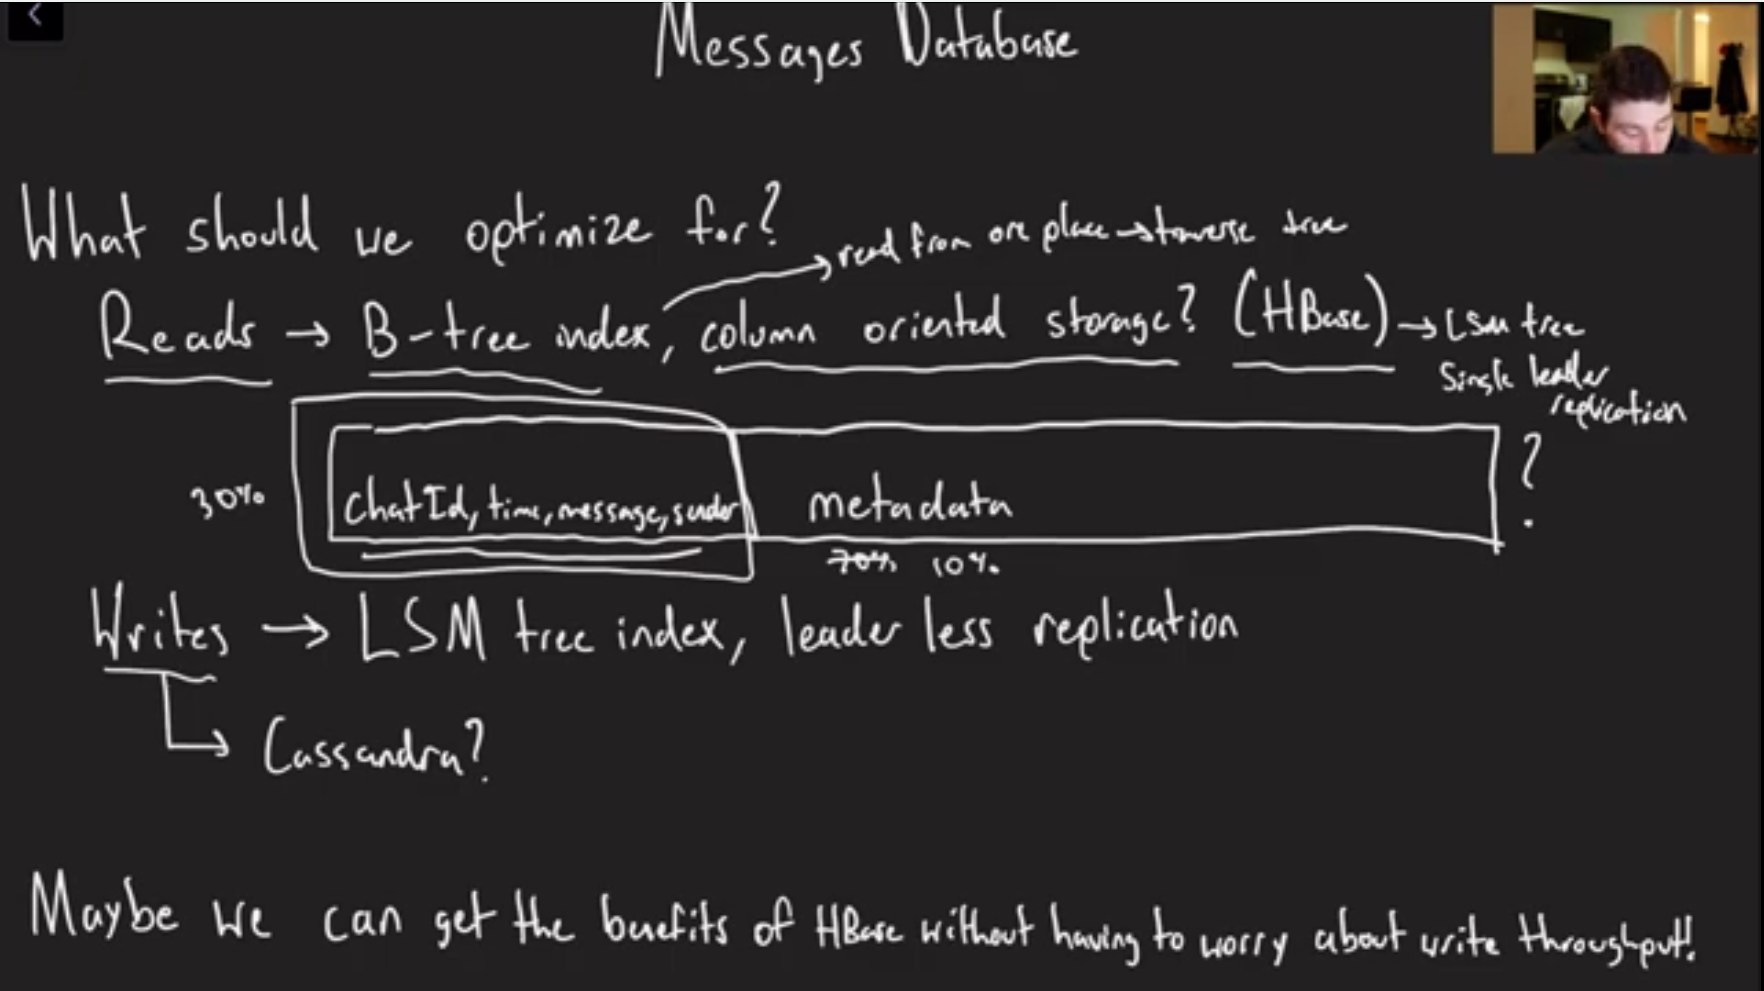 Messages Database
What should we optimize for?
read from one place → traverse tree
Reads → B-tree index, column oriented storage? (HBase) → LSM tree
Single leader
replication
30%
chatId, time, message, sender
metadata
?
70% 10%
Writes → LSM tree index, leader less replication
Cassandra?
Maybe we can get the benefits of HBase without having to worry about write throughput!